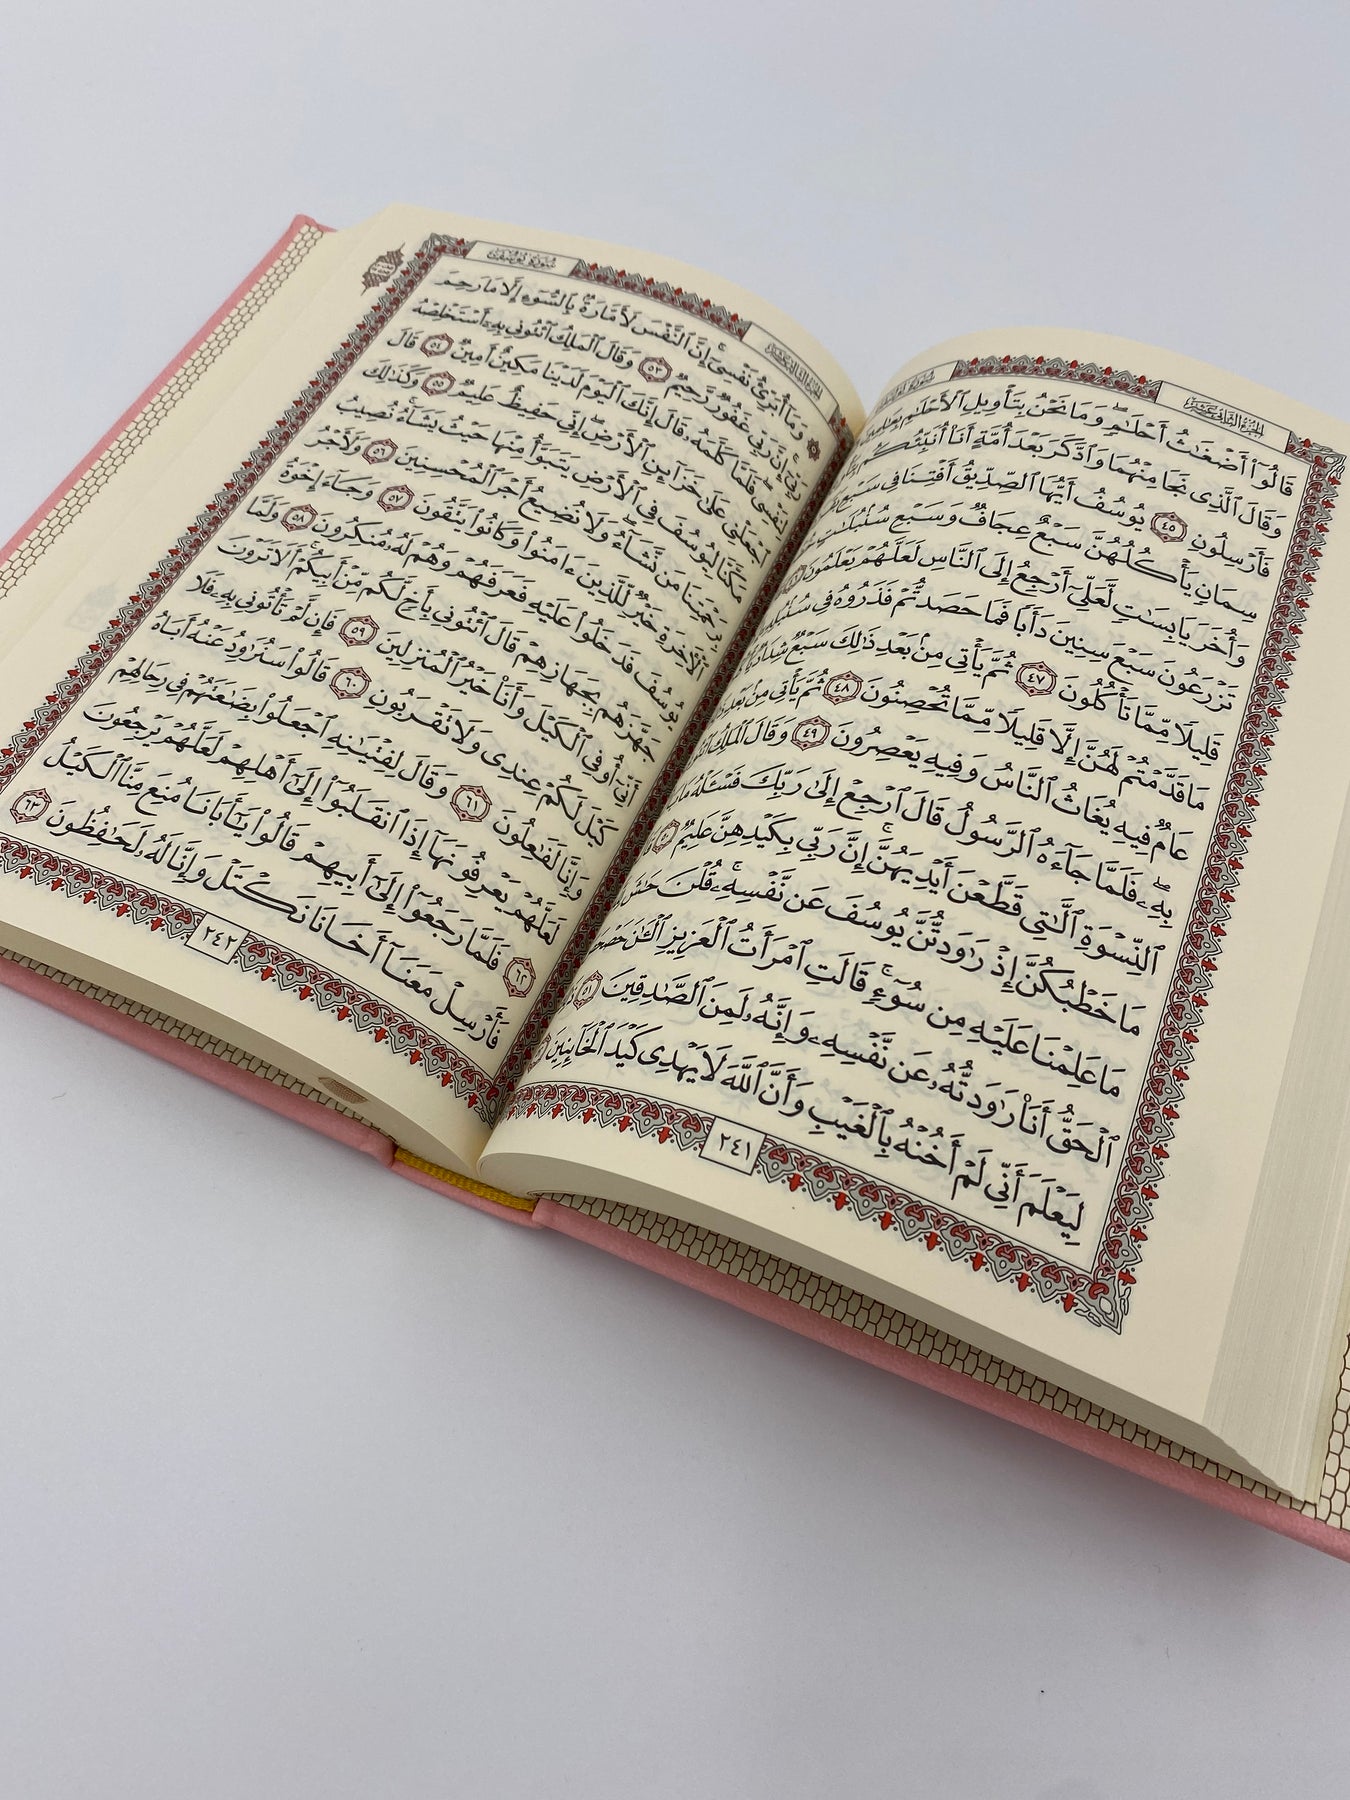 سُورَةُ يُوسُفَ
الجُزْءُ الثَّانِي عَشَرَ
قَالُوٓا۟ أَضْغَٰثُ أَحْلَٰمٍۖ وَمَا نَحْنُ بِتَأْوِيلِ ٱلْأَحْلَٰمِ
وَقَالَ ٱلَّذِى نَجَا مِنْهُمَا وَٱدَّكَرَ بَعْدَ أُمَّةٍ أَنَا۠ أُنَبِّئُكُم
فَأَرْسِلُونِ ٤٥ يُوسُفُ أَيُّهَا ٱلصِّدِّيقُ أَفْتِنَا فِى سَبْعِ
سِمَانٍ يَأْكُلُهُنَّ سَبْعٌ عِجَافٌ وَسَبْعِ سُنۢبُلَٰتٍ
وَأُخَرَ يَابِسَٰتٍ لَّعَلِّىٓ أَرْجِعُ إِلَى ٱلنَّاسِ لَعَلَّهُمْ يَعْلَمُونَ
تَزْرَعُونَ سَبْعَ سِنِينَ دَأَبًا فَمَا حَصَدتُّمْ فَذَرُوهُ فِى
قَلِيلًا مِّمَّا تَأْكُلُونَ ٤٧ ثُمَّ يَأْتِى مِنۢ بَعْدِ ذَٰلِكَ سَبْعٌ شِدَادٌ
مَا قَدَّمْتُمْ لَهُنَّ إِلَّا قَلِيلًا مِّمَّا تُحْصِنُونَ ٤٨ ثُمَّ يَأْتِى مِنۢ بَعْدِ
عَامٌ فِيهِ يُغَاثُ ٱلنَّاسُ وَفِيهِ يَعْصِرُونَ ٤٩ وَقَالَ ٱلْمَلِكُ
بِهِۦۖ فَلَمَّا جَآءَهُ ٱلرَّسُولُ قَالَ ٱرْجِعْ إِلَىٰ رَبِّكَ فَسْـَٔلْهُ مَا
ٱلنِّسْوَةِ ٱلَّٰتِى قَطَّعْنَ أَيْدِيَهُنَّۚ إِنَّ رَبِّى بِكَيْدِهِنَّ عَلِيمٌ ٥٠
مَا خَطْبُكُنَّ إِذْ رَٰوَدتُّنَّ يُوسُفَ عَن نَّفْسِهِۦۚ قُلْنَ حَٰشَ
مَا عَلِمْنَا عَلَيْهِ مِن سُوٓءٍۚ قَالَتِ ٱمْرَأَتُ ٱلْعَزِيزِ ٱلْـَٰٔنَ
ٱلْحَقُّ أَنَا۠ رَٰوَدتُّهُۥ عَن نَّفْسِهِۦ وَإِنَّهُۥ لَمِنَ ٱلصَّٰدِقِينَ ٥١
لِيَعْلَمَ أَنِّى لَمْ أَخُنْهُ بِٱلْغَيْبِ وَأَنَّ ٱللَّهَ لَا يَهْدِى كَيْدَ ٱلْخَآئِنِينَ
٢٤١
سُورَةُ يُوسُفَ
وَمَآ أُبَرِّئُ نَفْسِىٓۚ إِنَّ ٱلنَّفْسَ لَأَمَّارَةٌۢ بِٱلسُّوٓءِ إِلَّا مَا رَحِمَ
رَبِّىٓۚ إِنَّ رَبِّى غَفُورٌ رَّحِيمٌ ٥٣ وَقَالَ ٱلْمَلِكُ ٱئْتُونِى بِهِۦٓ أَسْتَخْلِصْهُ
لِنَفْسِىۖ فَلَمَّا كَلَّمَهُۥ قَالَ إِنَّكَ ٱلْيَوْمَ لَدَيْنَا مَكِينٌ أَمِينٌ ٥٤ قَالَ
ٱجْعَلْنِى عَلَىٰ خَزَآئِنِ ٱلْأَرْضِۖ إِنِّى حَفِيظٌ عَلِيمٌ ٥٥ وَكَذَٰلِكَ
مَكَّنَّا لِيُوسُفَ فِى ٱلْأَرْضِ يَتَبَوَّأُ مِنْهَا حَيْثُ يَشَآءُۚ نُصِيبُ
بِرَحْمَتِنَا مَن نَّشَآءُۖ وَلَا نُضِيعُ أَجْرَ ٱلْمُحْسِنِينَ ٥٦ وَلَأَجْرُ
ٱلْـَٔاخِرَةِ خَيْرٌ لِّلَّذِينَ ءَامَنُوا۟ وَكَانُوا۟ يَتَّقُونَ ٥٧ وَجَآءَ إِخْوَةُ
يُوسُفَ فَدَخَلُوا۟ عَلَيْهِ فَعَرَفَهُمْ وَهُمْ لَهُۥ مُنكِرُونَ ٥٨ وَلَمَّا
جَهَّزَهُم بِجَهَازِهِمْ قَالَ ٱئْتُونِى بِأَخٍ لَّكُم مِّنْ أَبِيكُمْۚ أَلَا تَرَوْنَ
أَنِّىٓ أُوفِى ٱلْكَيْلَ وَأَنَا۠ خَيْرُ ٱلْمُنزِلِينَ ٥٩ فَإِن لَّمْ تَأْتُونِى بِهِۦ فَلَا
كَيْلَ لَكُمْ عِندِى وَلَا تَقْرَبُونِ ٦٠ قَالُوا۟ سَنُرَٰوِدُ عَنْهُ أَبَاهُ
وَإِنَّا لَفَٰعِلُونَ ٦١ وَقَالَ لِفِتْيَٰنِهِ ٱجْعَلُوا۟ بِضَٰعَتَهُمْ فِى رِحَالِهِمْ
لَعَلَّهُمْ يَعْرِفُونَهَآ إِذَا ٱنقَلَبُوٓا۟ إِلَىٰٓ أَهْلِهِمْ لَعَلَّهُمْ يَرْجِعُونَ
٦٢ فَلَمَّا رَجَعُوٓا۟ إِلَىٰٓ أَبِيهِمْ قَالُوا۟ يَٰٓأَبَانَا مُنِعَ مِنَّا ٱلْكَيْلُ
فَأَرْسِلْ مَعَنَآ أَخَانَا نَكْتَلْ وَإِنَّا لَهُۥ لَحَٰفِظُونَ ٦٣
٢٤٢